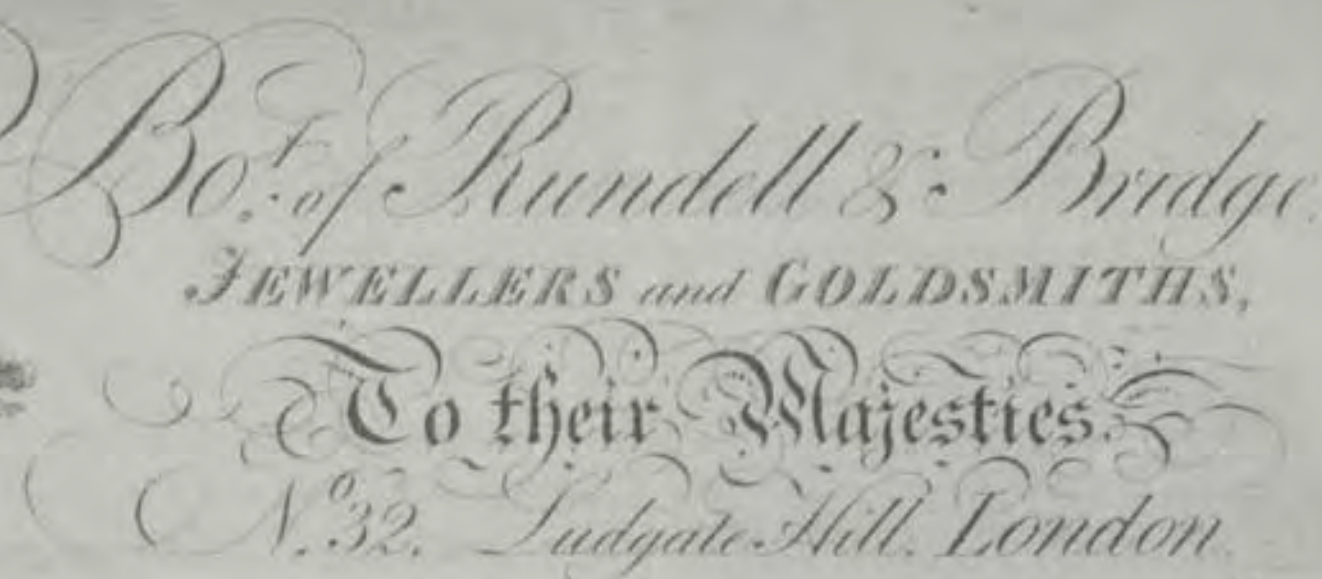 Bo.t of Rundell & Bridge.
JEWELLERS and GOLDSMITHS,
To their Majesties.
N.o 32. Ludgate Hill. London.